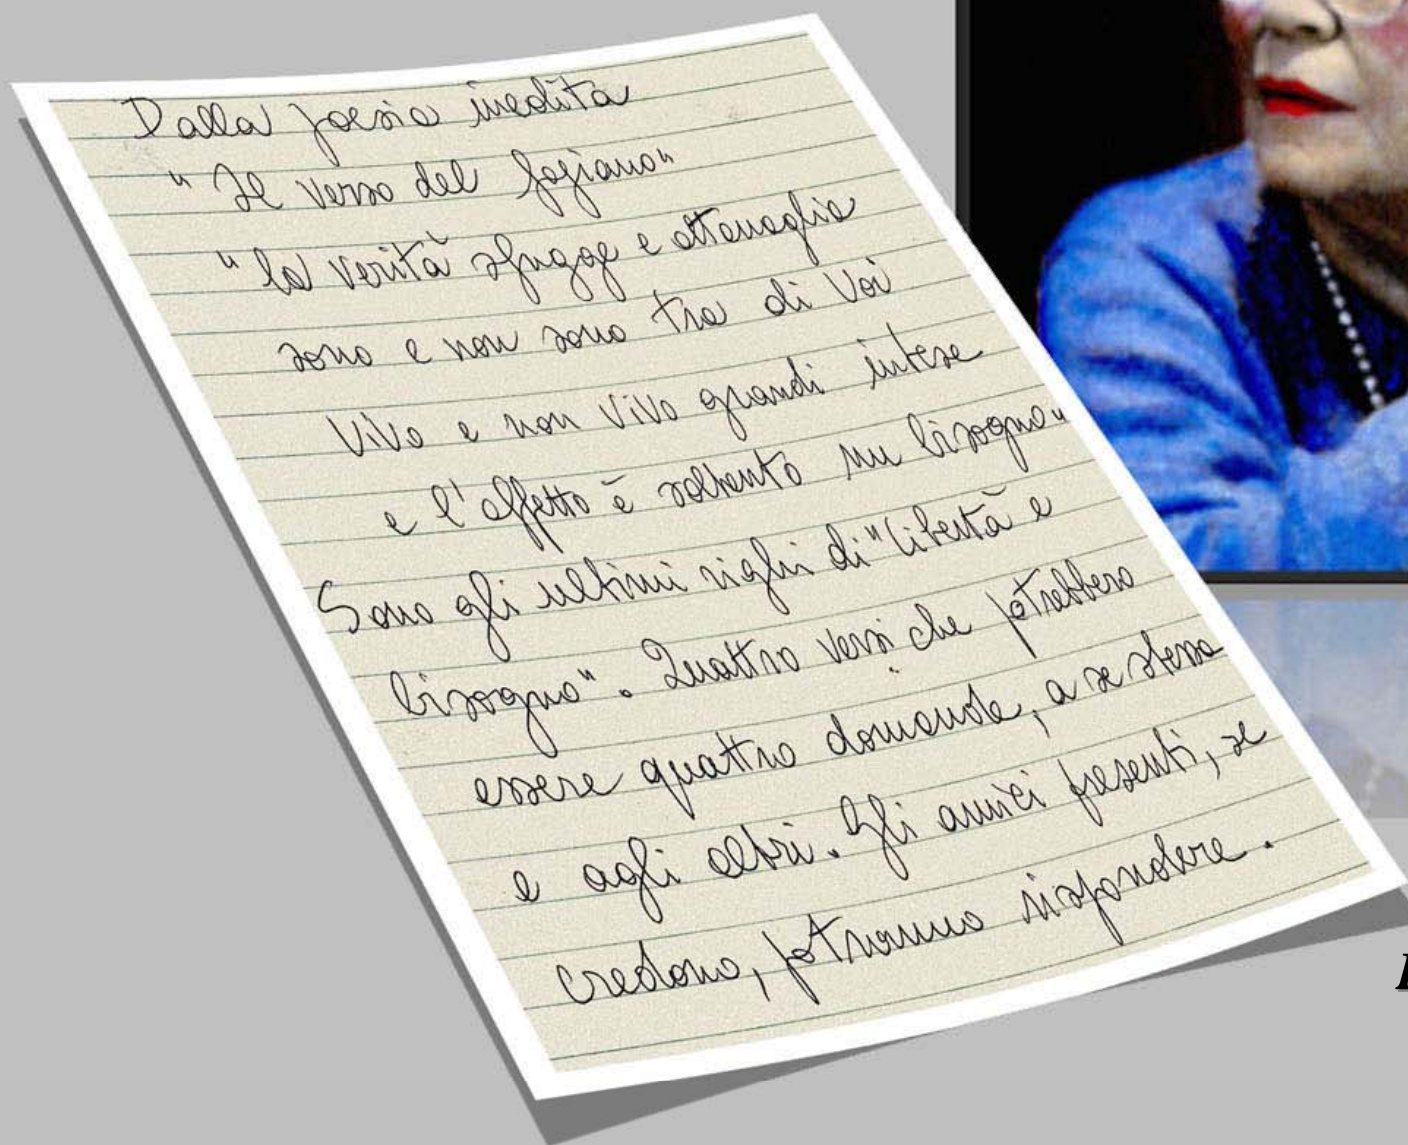 Dalla poesia inedita
"Il verso del fagiano"
"la verità sfugge e attanaglia
sono e non sono tra di Voi
Vivo e non Vivo grandi intese
e l'affetto è soltanto un bisogno"
Sono gli ultimi righi di "libertà e
bisogno". Quattro versi che potrebbero
essere quattro domande, a se stessa
e agli altri. Gli amici presenti, se
credono, potranno rispondere.